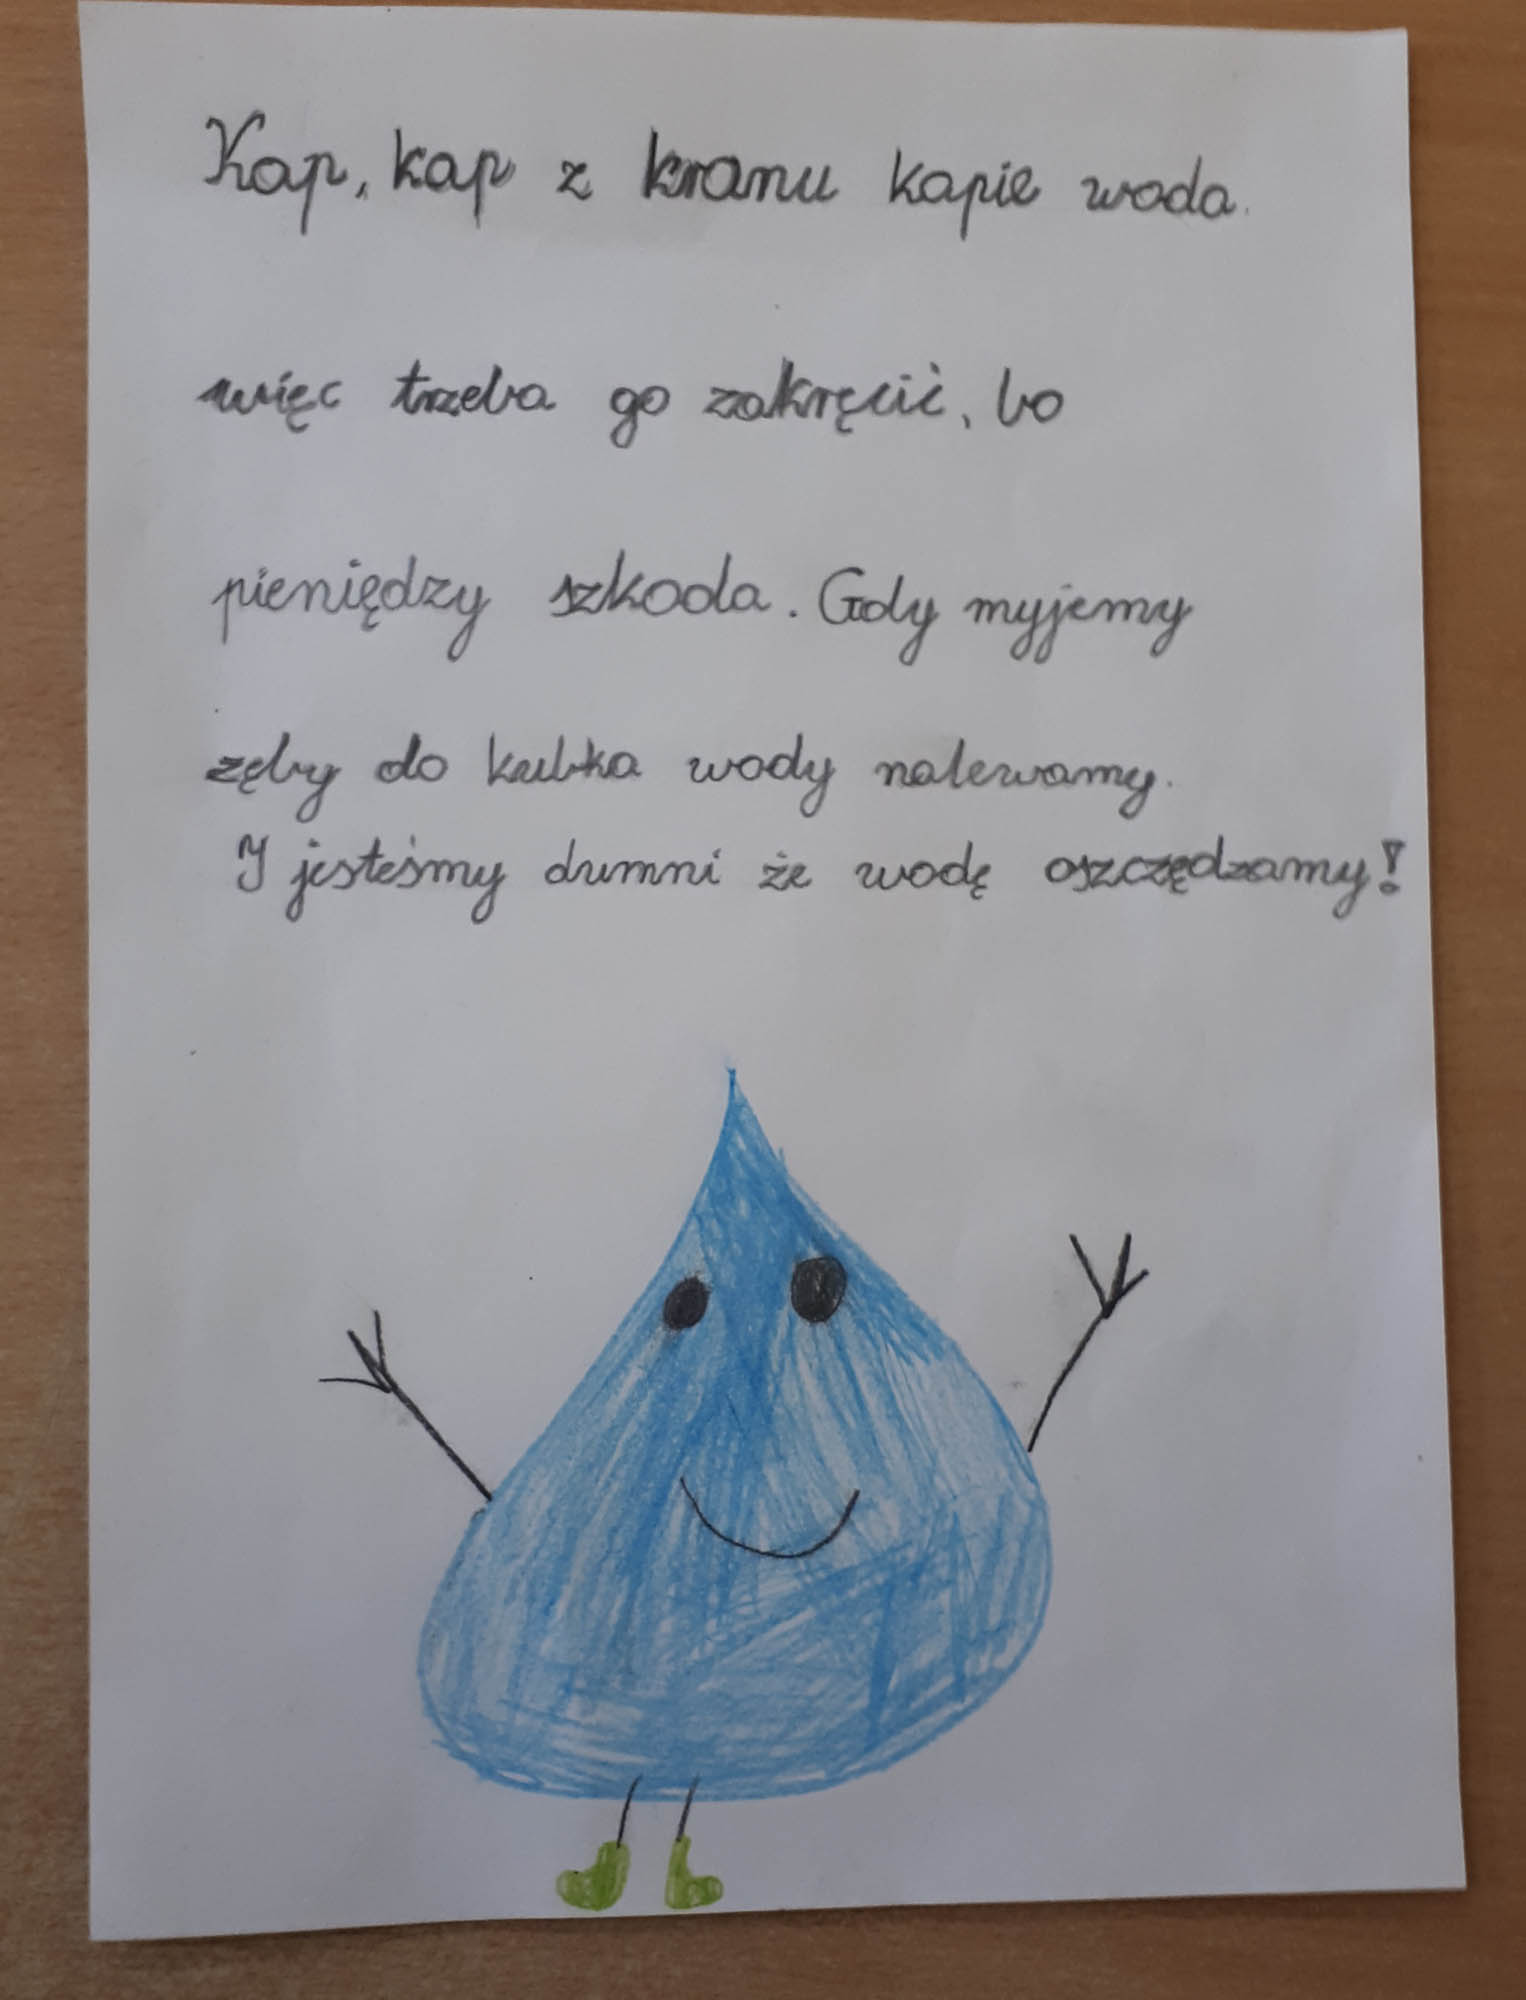 Kap, kap z kranu kapie woda.
więc trzeba go zakręcić, bo
pieniędzy szkoda. Gdy myjemy
zęby do kubka wody nalewamy.
I jesteśmy dumni że wodę oszczędzamy!